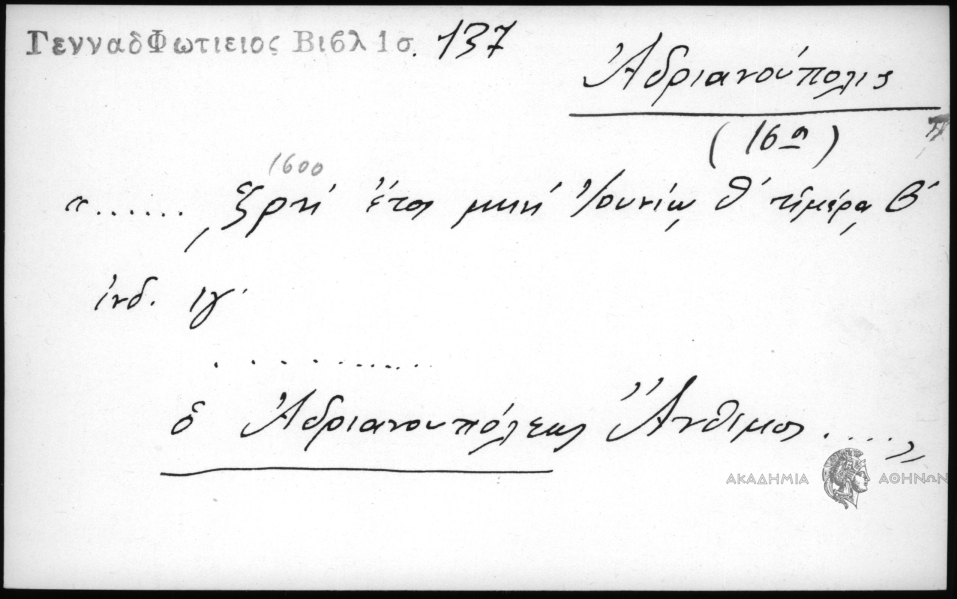 ΓενναδΦωτιειος Βιβλ 1σ. 137
Ἀδριανούπολις
(16η)
1600
"...... ͵ζρη ἔτος μηνὶ Ἰουνίῳ θ' ἡμέρᾳ β'
ἰνδ. ιγ'
...........
ὁ Ἀδριανουπόλεως Ἄνθιμος ....."
ΑΚΑΔΗΜΙΑ ΑΘΗΝΩΝ